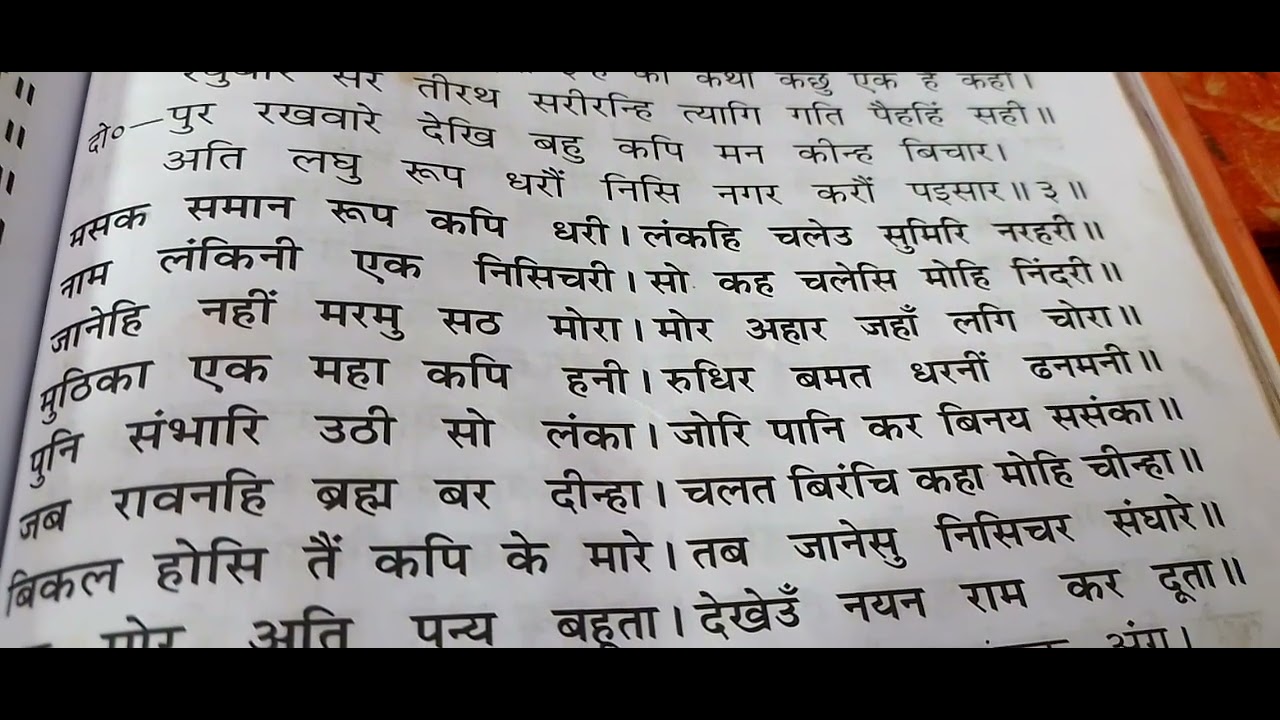 कथा कछु एक है कही।
सर तीरथ सरीरन्हि त्यागि गति पैहहिं सही॥
दो०—पुर रखवारे देखि बहु कपि मन कीन्ह बिचार।
अति लघु रूप धरौं निसि नगर करौं पइसार॥३॥
मसक समान रूप कपि धरी। लंकहि चलेउ सुमिरि नरहरी॥
नाम लंकिनी एक निसिचरी। सो कह चलेसि मोहि निंदरी॥
जानेहि नहीं मरमु सठ मोरा। मोर अहार जहाँ लगि चोरा॥
मुठिका एक महा कपि हनी। रुधिर बमत धरनीं ढनमनी॥
पुनि संभारि उठी सो लंका। जोरि पानि कर बिनय ससंका॥
जब रावनहि ब्रह्म बर दीन्हा। चलत बिरंचि कहा मोहि चीन्हा॥
बिकल होसि तैं कपि के मारे। तब जानेसु निसिचर संघारे॥
मोर अति पुन्य बहूता। देखेउँ नयन राम कर दूता॥
अंग।